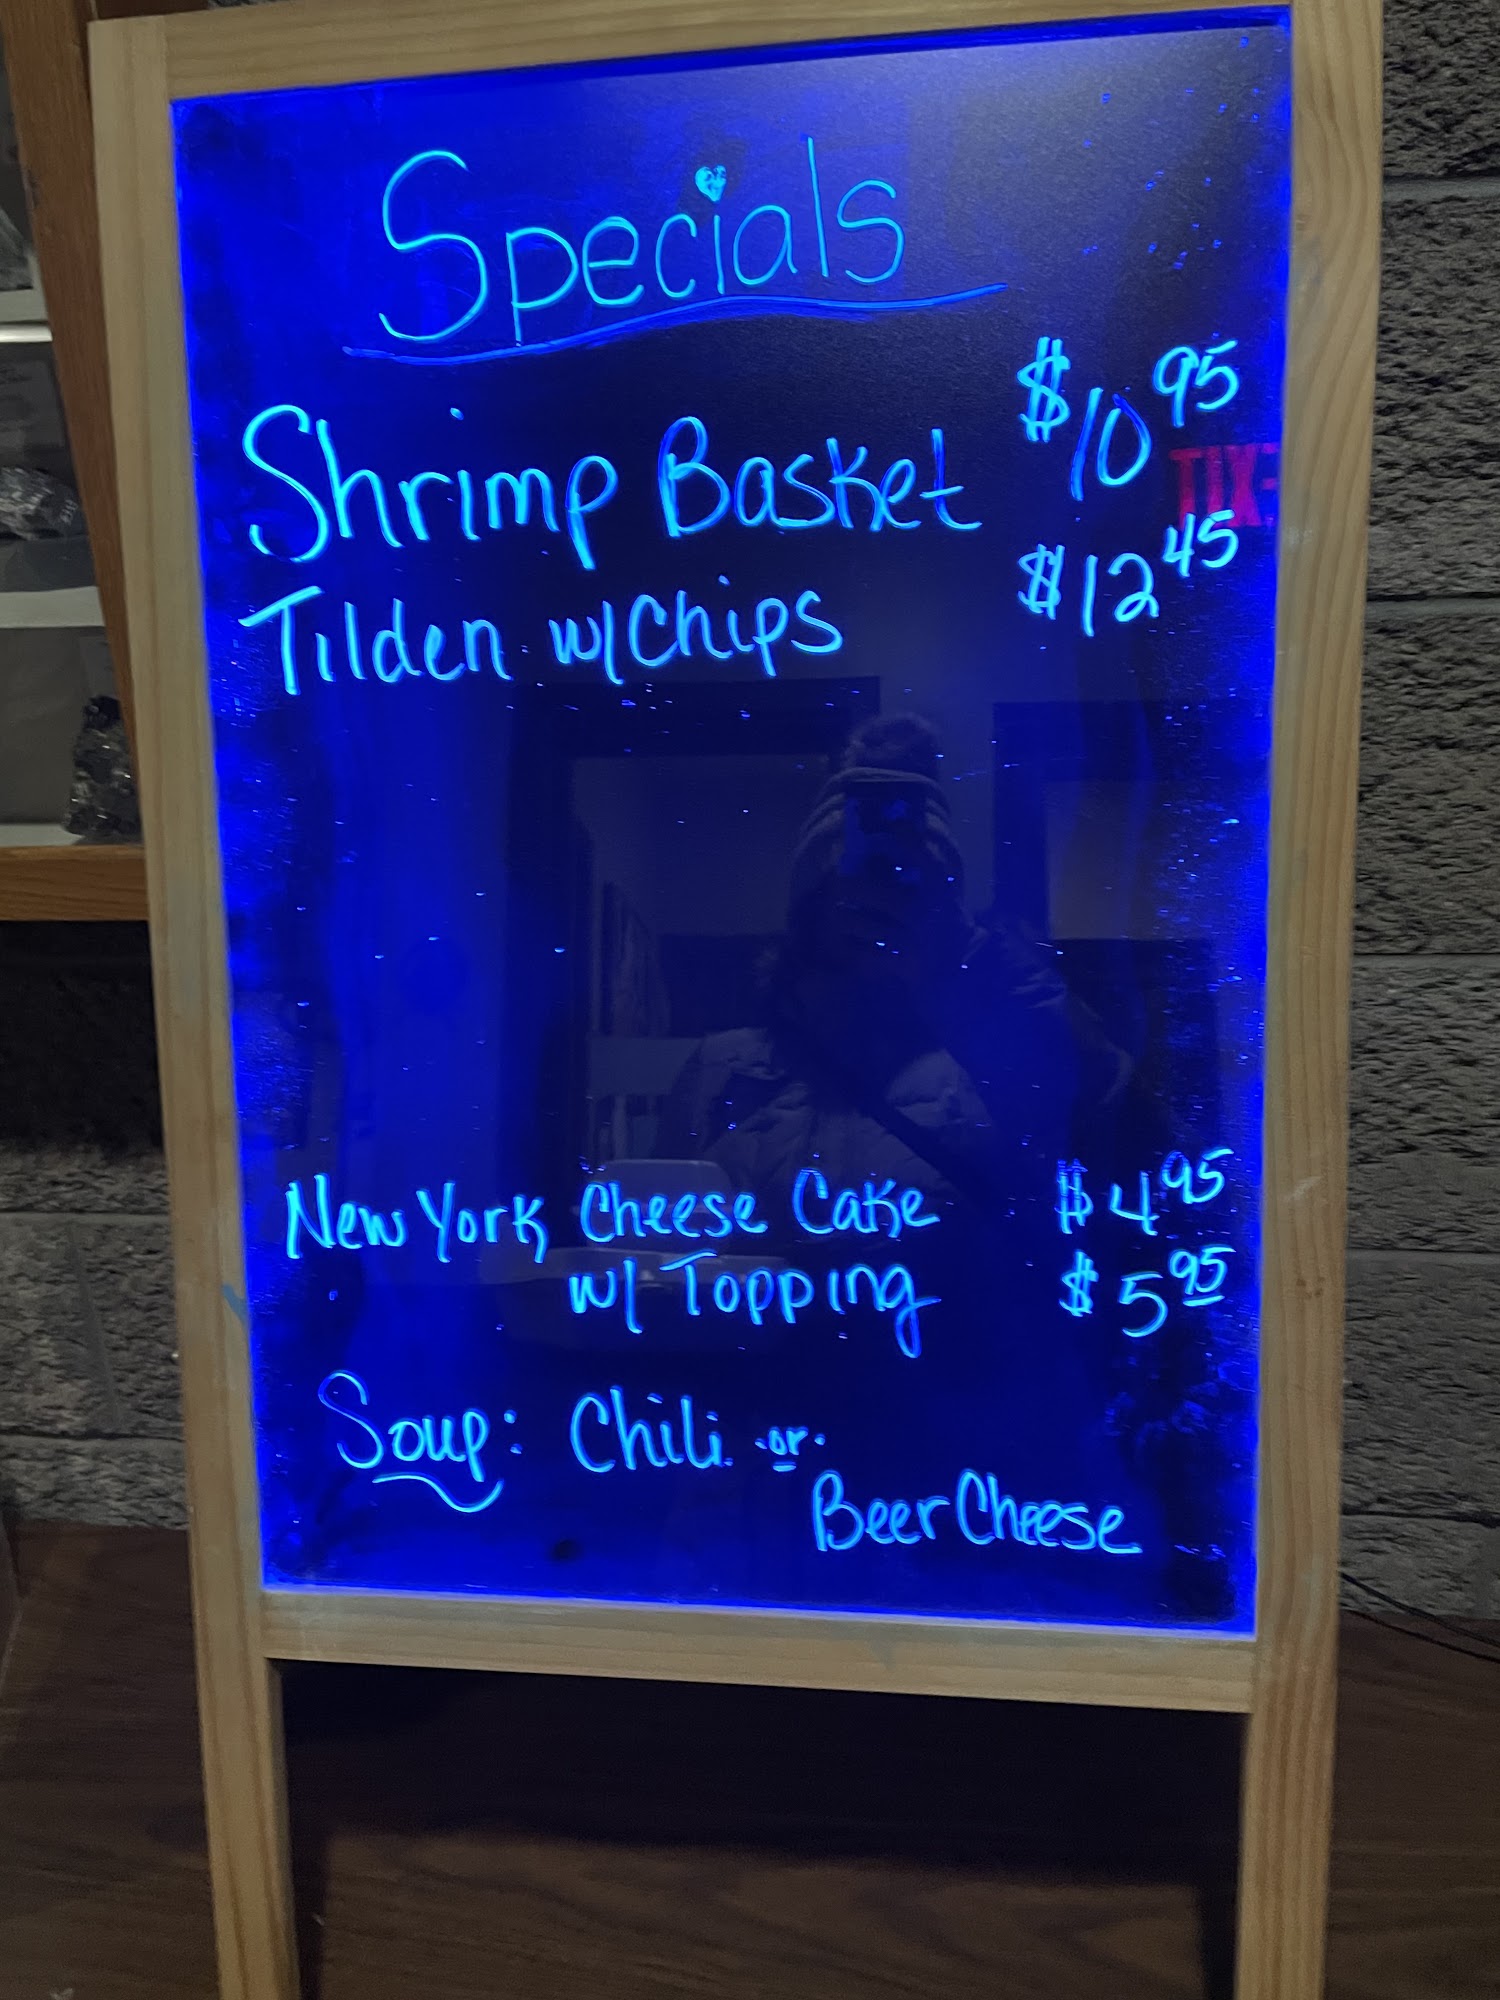 Specials
Shrimp Basket $10.95
EXIT
Tilden w/chips $12.45
New York Cheese Cake $4.95
w/ Topping $5.95
Soup: Chili or
Beer Cheese